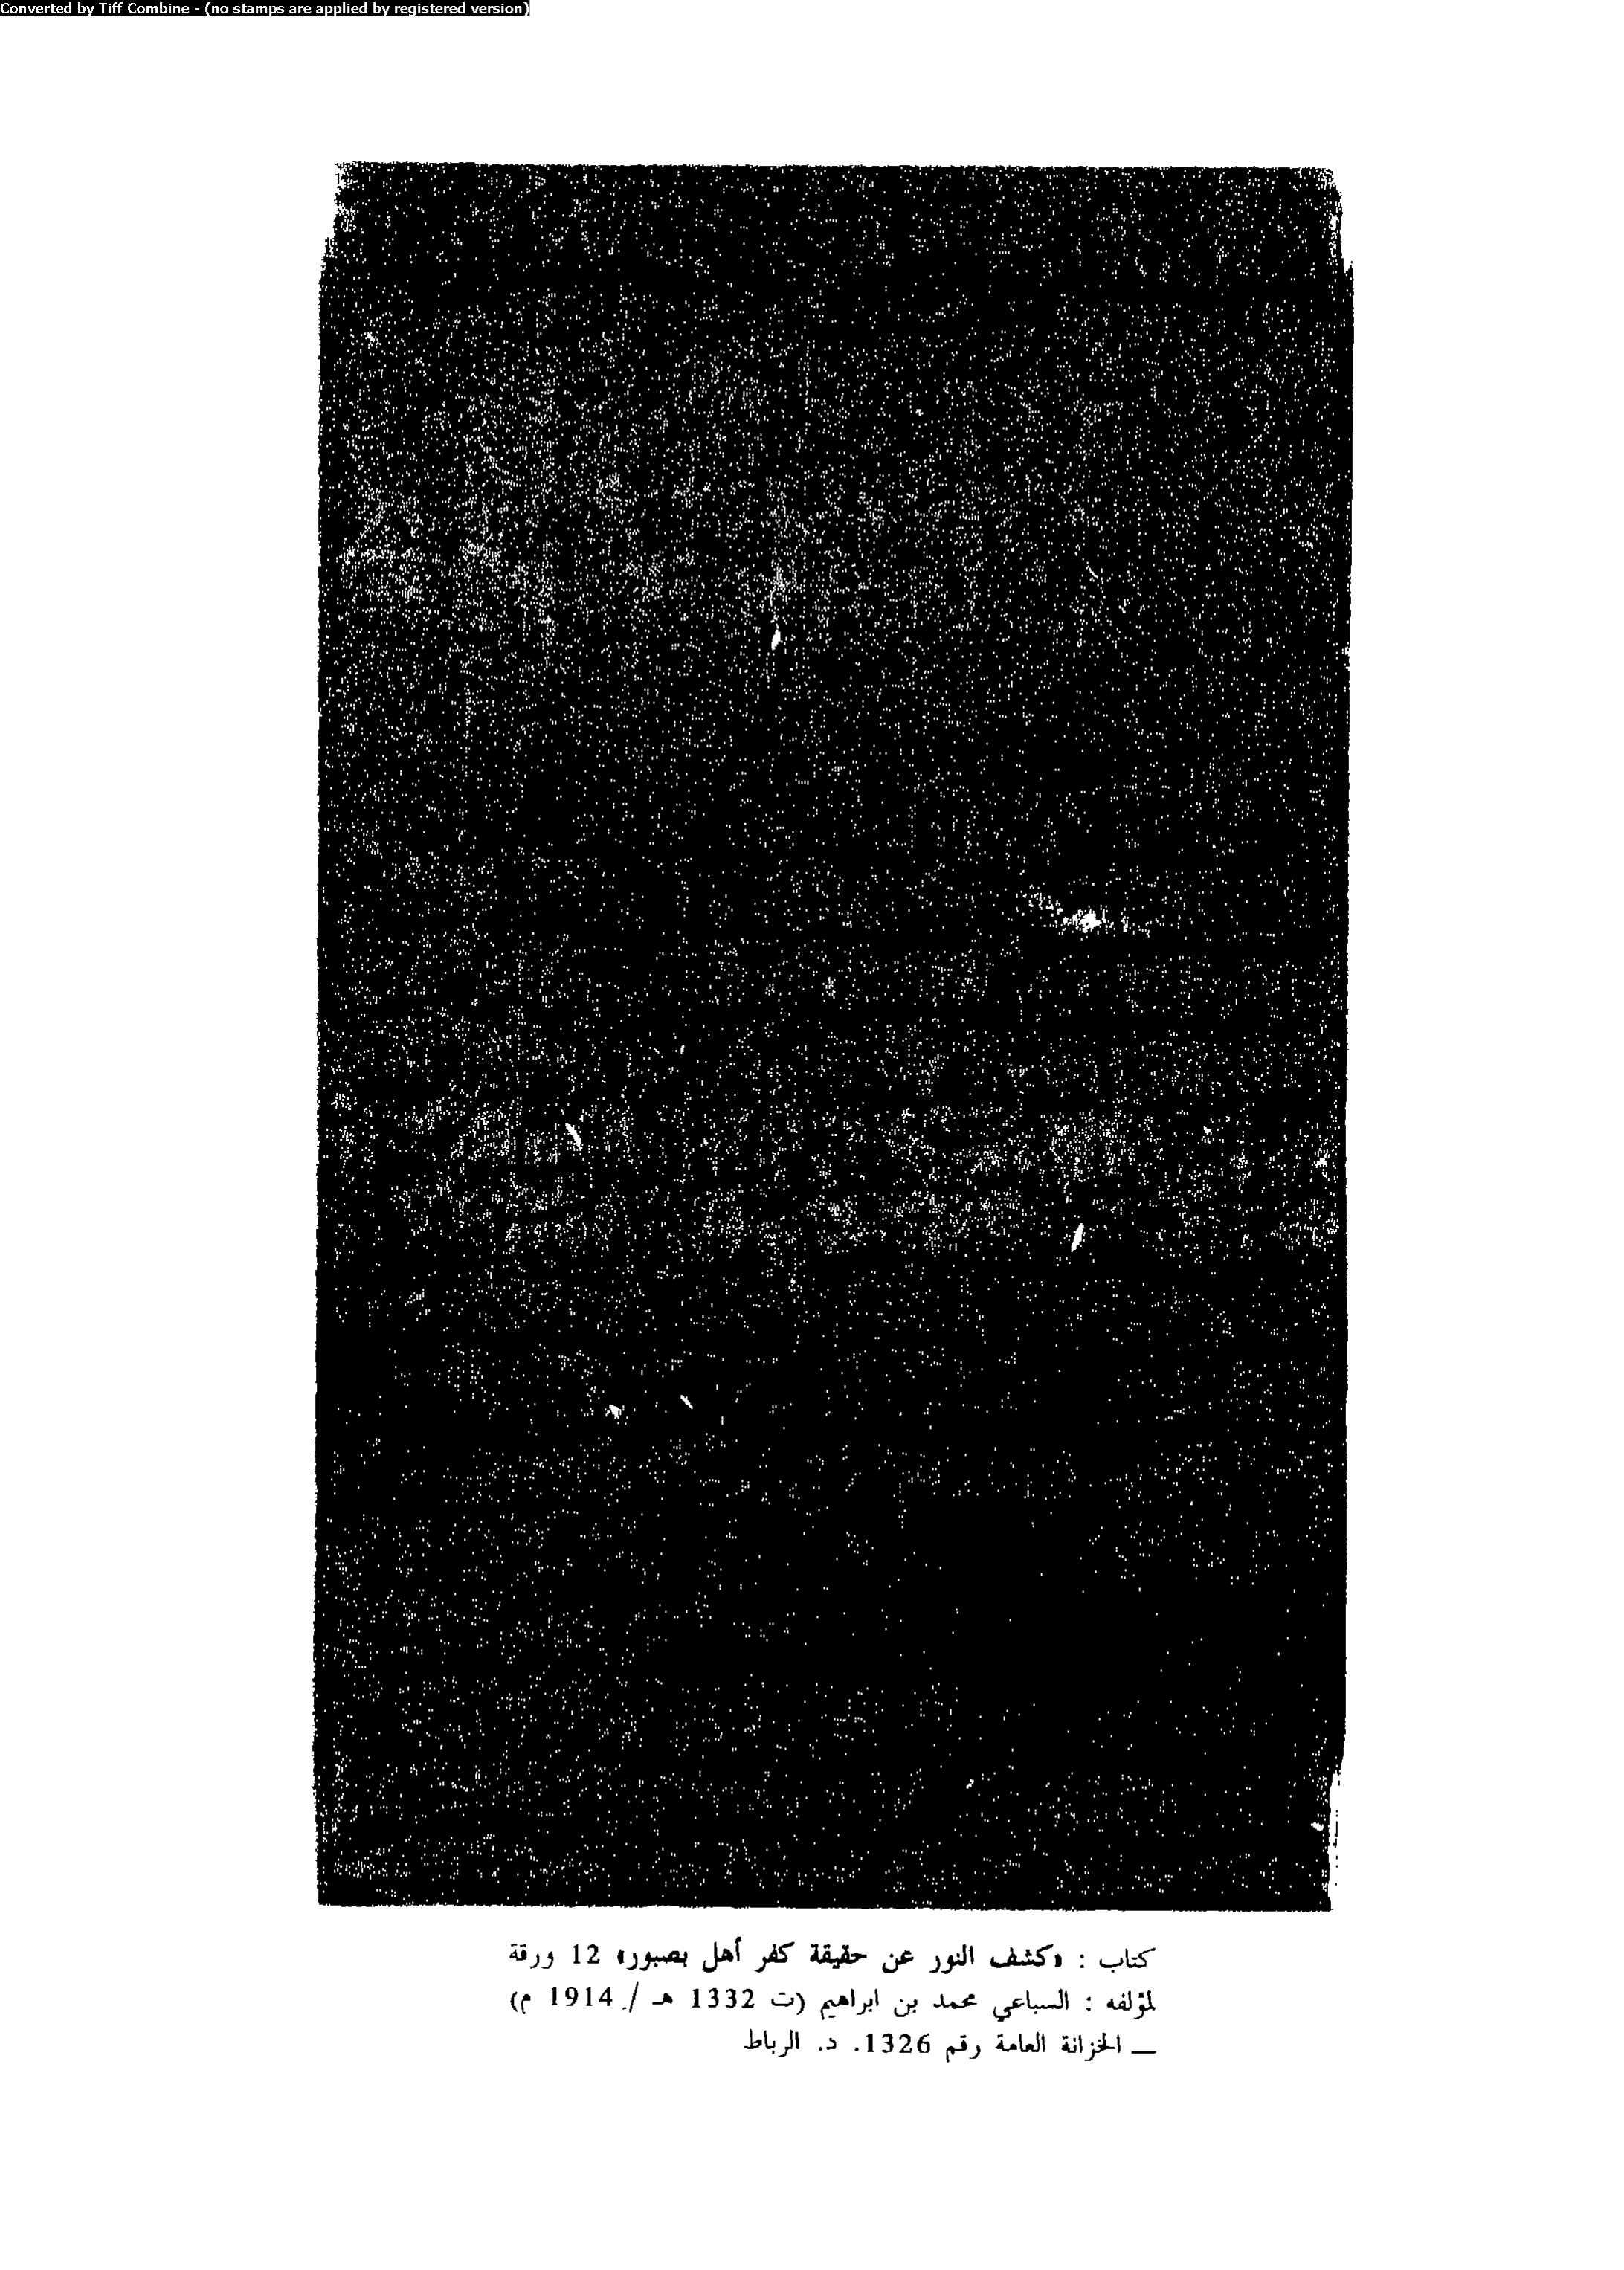 Converted by Tiff Combine - (no stamps are applied by registered version)
كتاب : «كشف النور عن حقيقة كفر أهل بصبور» 12 ورقة
لمؤلفه : السباعي محمد بن ابراهيم (ت 1332 هـ / 1914 م)
— الخزانة العامة رقم 1326. د. الرباط